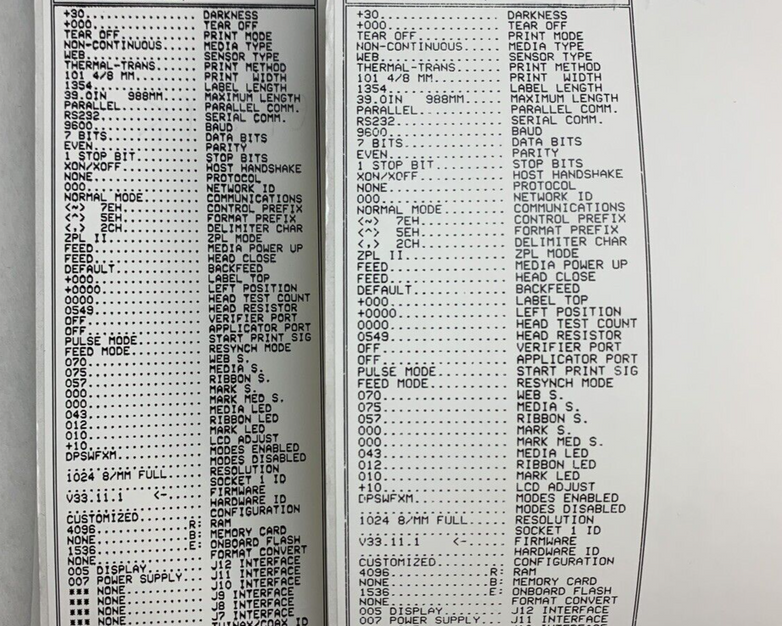 +30................ DARKNESS
+000............... TEAR OFF
TEAR OFF........... PRINT MODE
NON-CONTINUOUS..... MEDIA TYPE
WEB................ SENSOR TYPE
THERMAL-TRANS...... PRINT METHOD
101 4/8 MM......... PRINT WIDTH
1354............... LABEL LENGTH
39.0IN 988MM....... MAXIMUM LENGTH
PARALLEL........... PARALLEL COMM.
RS232.............. SERIAL COMM.
9600............... BAUD
7 BITS............. DATA BITS
EVEN............... PARITY
1 STOP BIT......... STOP BITS
XON/XOFF........... HOST HANDSHAKE
NONE............... PROTOCOL
000................ NETWORK ID
NORMAL MODE........ COMMUNICATIONS
<~> 7EH............ CONTROL PREFIX
<^> 5EH............ FORMAT PREFIX
<,> 2CH............ DELIMITER CHAR
ZPL II............. ZPL MODE
FEED............... MEDIA POWER UP
FEED............... HEAD CLOSE
DEFAULT............ BACKFEED
+000............... LABEL TOP
+0000.............. LEFT POSITION
0000............... HEAD TEST COUNT
0549............... HEAD RESISTOR
OFF................ VERIFIER PORT
OFF................ APPLICATOR PORT
PULSE MODE......... START PRINT SIG
FEED MODE.......... RESYNCH MODE
070................ WEB S.
075................ MEDIA S.
057................ RIBBON S.
000................ MARK S.
000................ MARK MED S.
043................ MEDIA LED
012................ RIBBON LED
010................ MARK LED
+10................ LCD ADJUST
DPSWFXM............ MODES ENABLED
................... MODES DISABLED
1024 8/MM FULL..... RESOLUTION
................... SOCKET 1 ID
V33.11.1 <-....... FIRMWARE
HARDWARE ID
CUSTOMIZED......... CONFIGURATION
4096............R: RAM
NONE............B: MEMORY CARD
1536............E: ONBOARD FLASH
NONE............... FORMAT CONVERT
005 DISPLAY........ J12 INTERFACE
007 POWER SUPPLY... J11 INTERFACE
*** NONE........... J10 INTERFACE
*** NONE........... J9 INTERFACE
*** NONE........... J8 INTERFACE
*** NONE........... J7 INTERFACE
TWINAX/COAX ID
+30................ DARKNESS
+000............... TEAR OFF
TEAR OFF........... PRINT MODE
NON-CONTINUOUS..... MEDIA TYPE
WEB................ SENSOR TYPE
THERMAL-TRANS...... PRINT METHOD
101 4/8 MM......... PRINT WIDTH
1354............... LABEL LENGTH
39.0IN 988MM....... MAXIMUM LENGTH
PARALLEL........... PARALLEL COMM.
RS232.............. SERIAL COMM.
9600............... BAUD
7 BITS............. DATA BITS
EVEN............... PARITY
1 STOP BIT......... STOP BITS
XON/XOFF........... HOST HANDSHAKE
NONE............... PROTOCOL
000................ NETWORK ID
NORMAL MODE........ COMMUNICATIONS
<~> 7EH............ CONTROL PREFIX
<^> 5EH............ FORMAT PREFIX
<,> 2CH............ DELIMITER CHAR
ZPL II............. ZPL MODE
FEED............... MEDIA POWER UP
FEED............... HEAD CLOSE
DEFAULT............ BACKFEED
+000............... LABEL TOP
+0000.............. LEFT POSITION
0000............... HEAD TEST COUNT
0549............... HEAD RESISTOR
OFF................ VERIFIER PORT
OFF................ APPLICATOR PORT
PULSE MODE......... START PRINT SIG
FEED MODE.......... RESYNCH MODE
070................ WEB S.
075................ MEDIA S.
057................ RIBBON S.
000................ MARK S.
000................ MARK MED S.
043................ MEDIA LED
012................ RIBBON LED
010................ MARK LED
+10................ LCD ADJUST
DPSWFXM............ MODES ENABLED
................... MODES DISABLED
1024 8/MM FULL..... RESOLUTION
................... SOCKET 1 ID
V33.11.1 <-....... FIRMWARE
HARDWARE ID
CUSTOMIZED......... CONFIGURATION
4096............R: RAM
NONE............B: MEMORY CARD
1536............E: ONBOARD FLASH
NONE............... FORMAT CONVERT
005 DISPLAY........ J12 INTERFACE
007 POWER SUPPLY... J11 INTERFACE